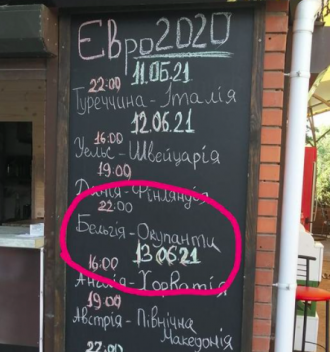 Євро2020
11.06.21
22:00
Туреччина - Італія
12.06.21
16:00
Уельс - Швейцарія
19:00
Данія - Фінляндія
22:00
Бельгія - Окупанти
13.06.21
16:00
Англія - Хорватія
19:00
Австрія - Північна
Македонія
22:00